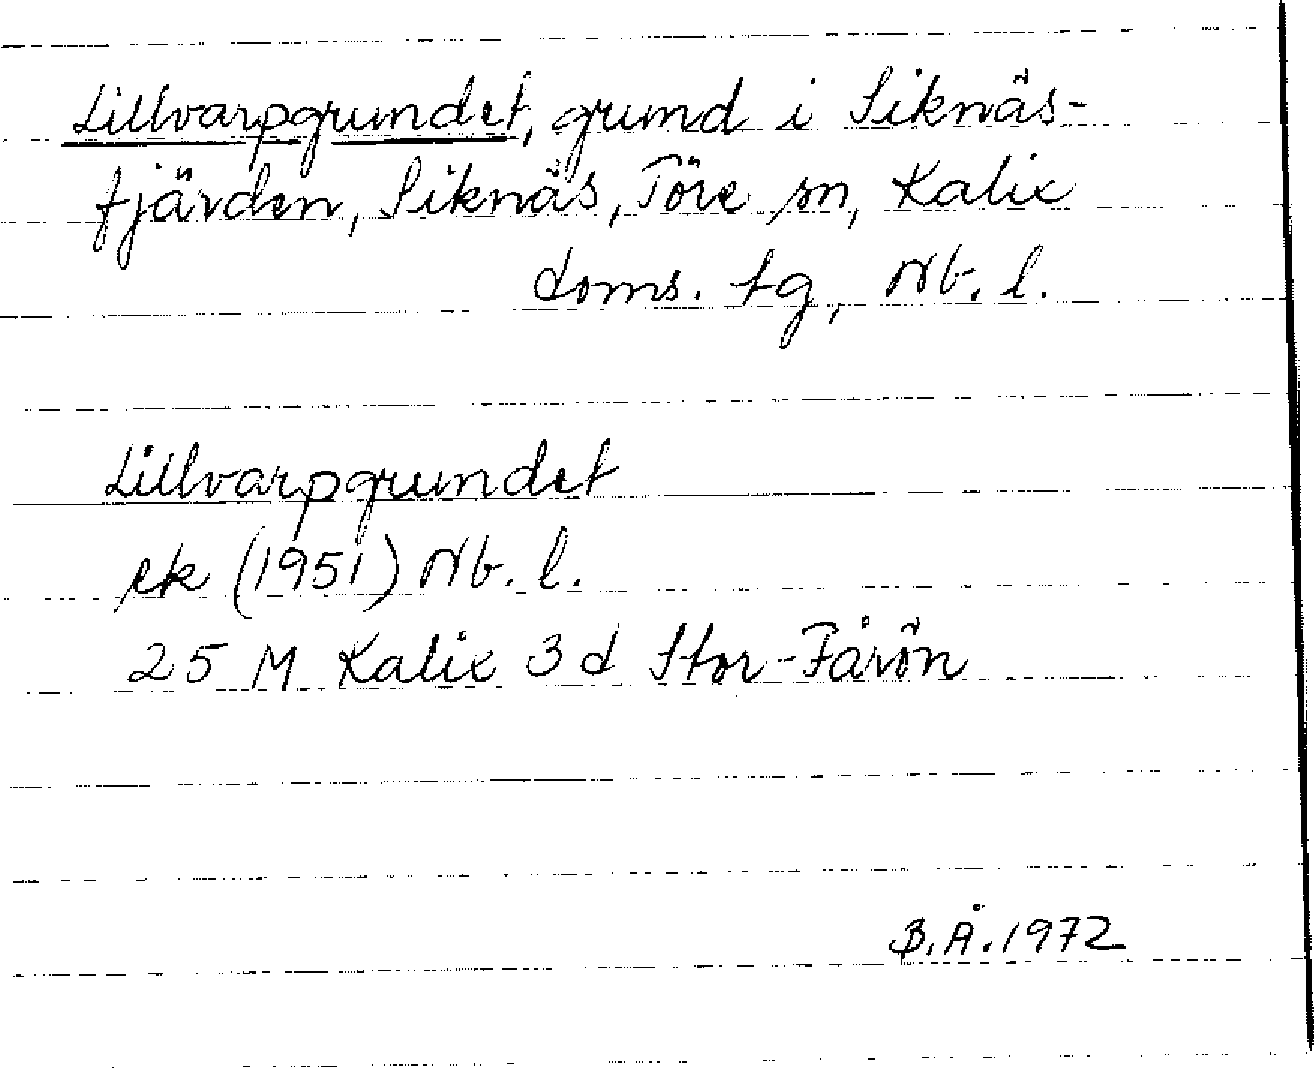 Lillvarpgrundet, grund i Siknäs-
fjärden, Siknäs, Töre sn, Kalix
doms. tg, Nb. l.
Lillvarpgrundet
ek (1951) Nb. l.
25 M Kalix 3d Stor-Fårön
B.Å. 1972